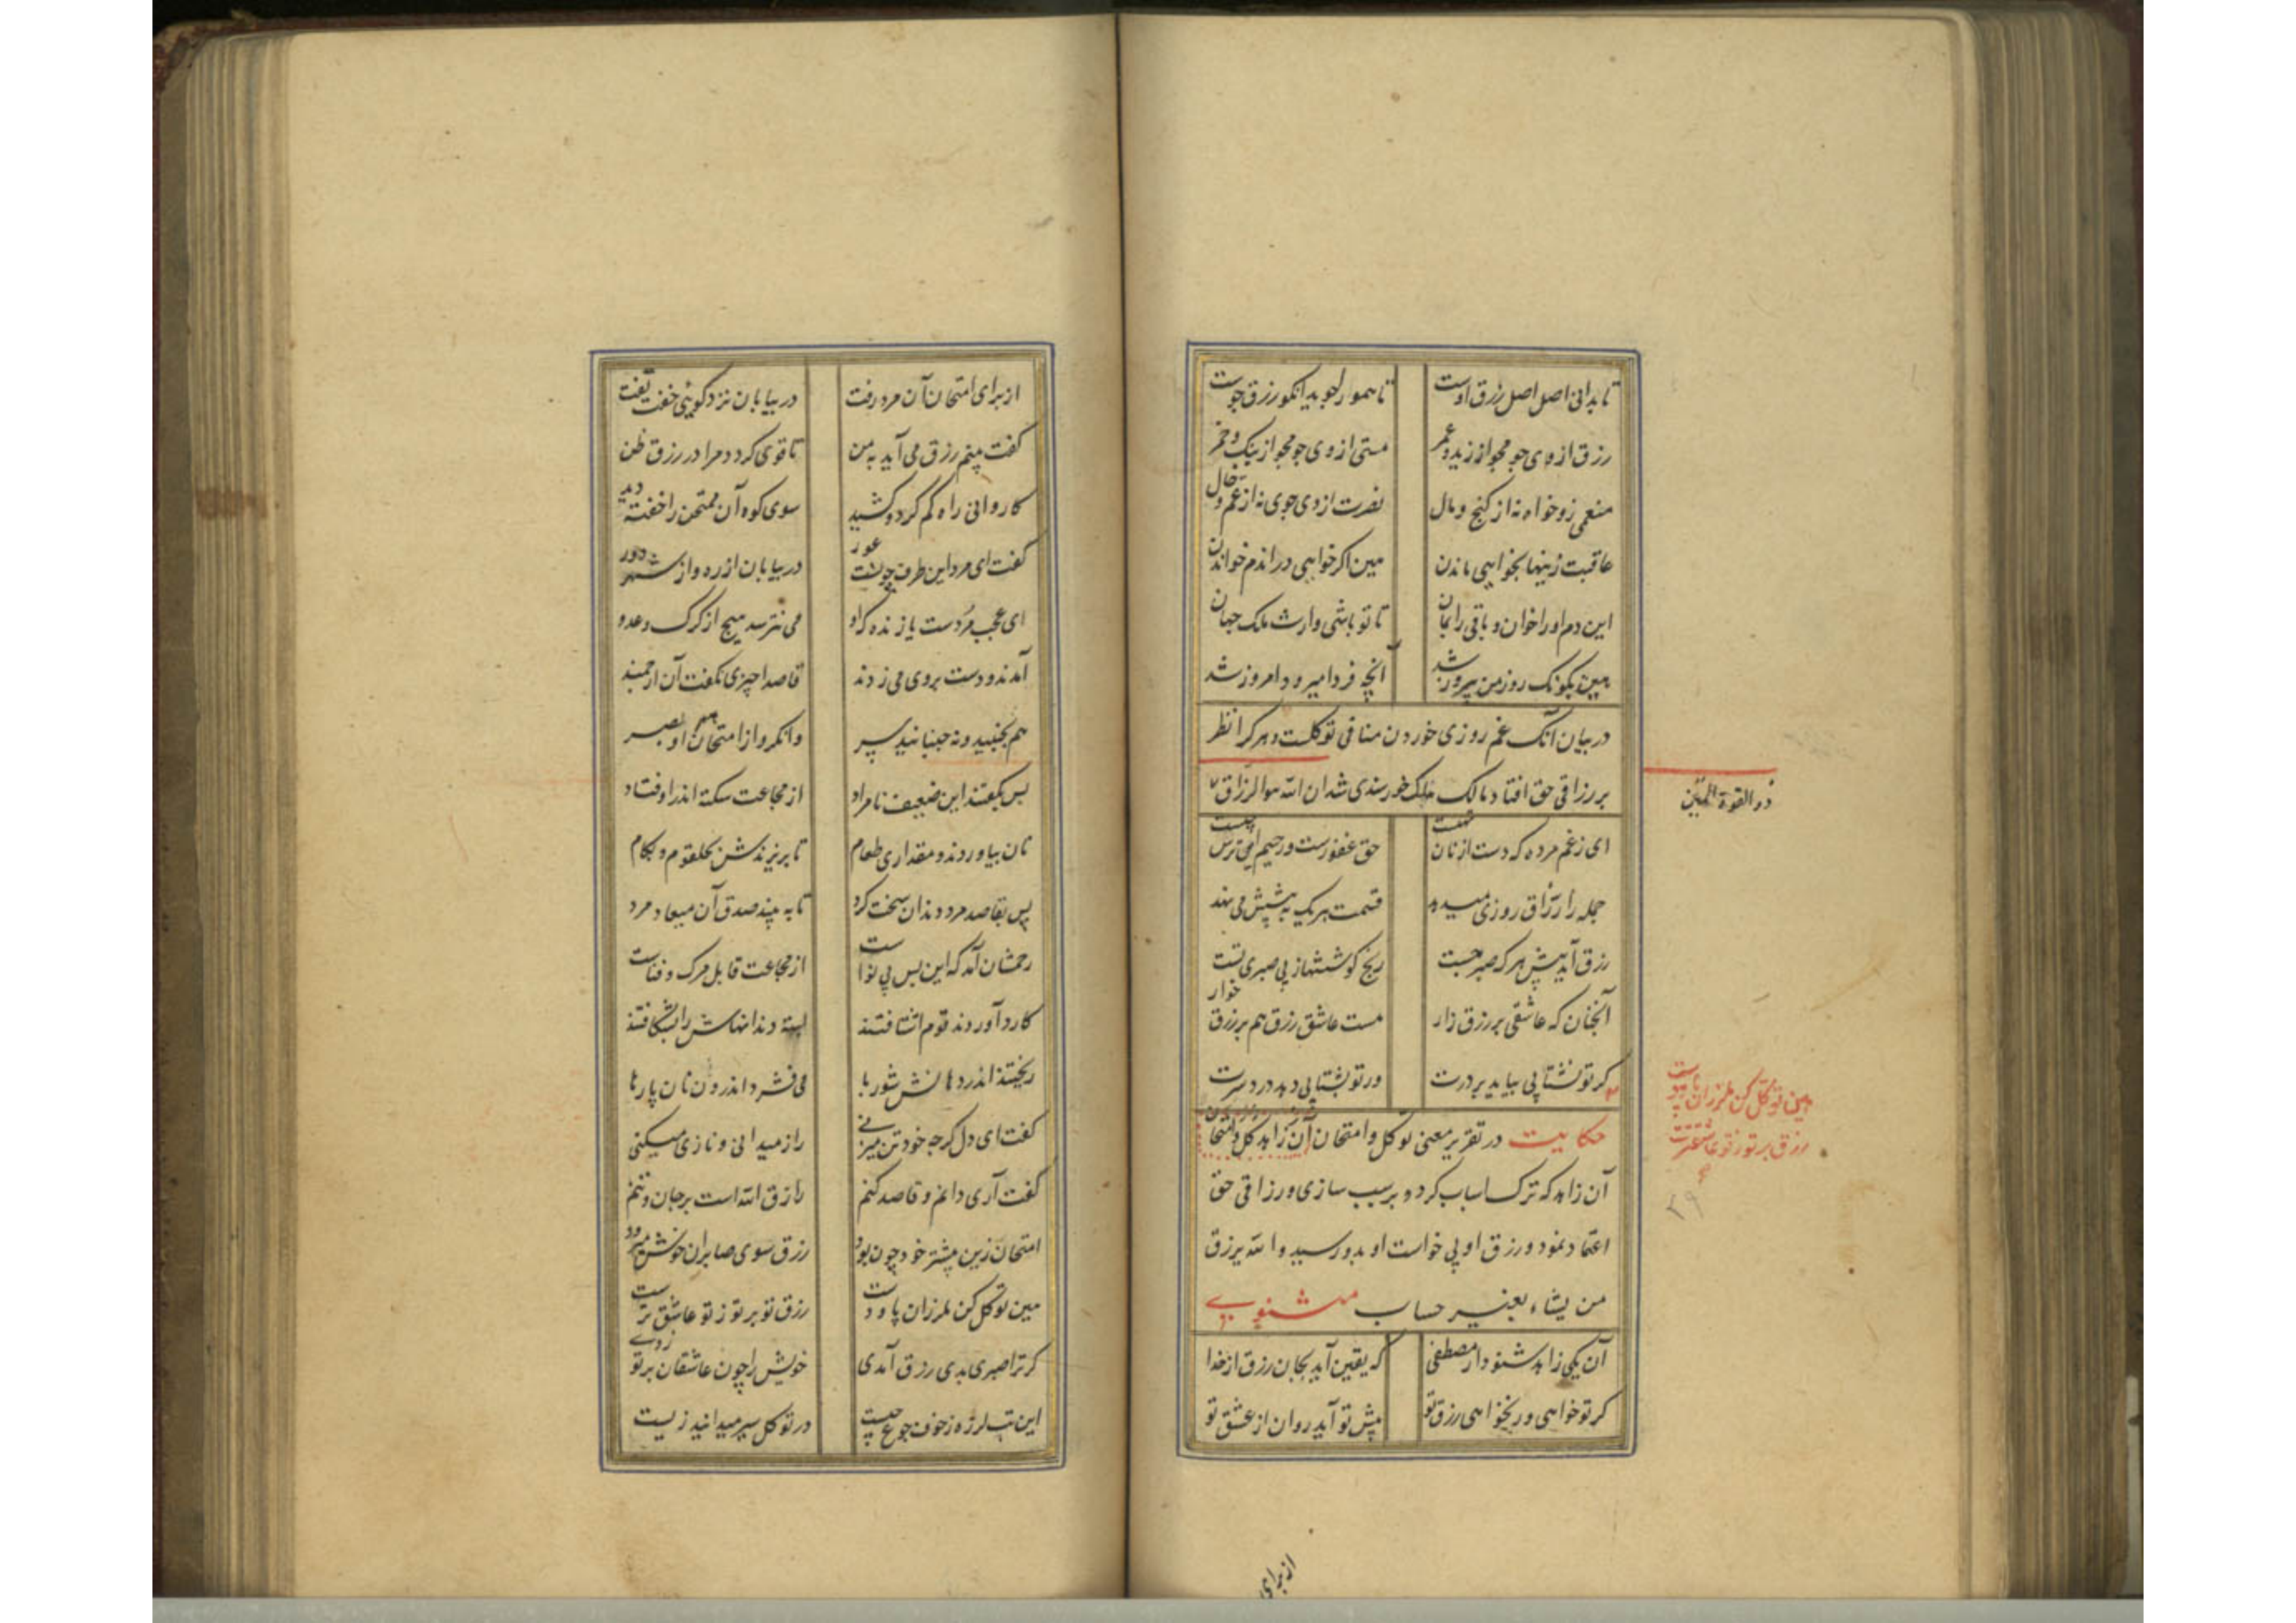 تا بدانی اصل اصل رزق اوست تا همو را جوید آنکو رزق جوست
رزق از وی جو مجو از زید و عمر مستی از وی جو مجو از بنک و خمر
منعمی زو خواه نه از کنج و مال نصرت از وی جوی نه از عم و خال
عاقبت زینها بخواهی ماندن هین کرا خواهی در اندم خواندن
این دم او را خوان و باقی را بمان تا تو باشی وارث ملک جهان
روز من پیروز شد آنچه فردا میرود امروز شد
در بیان آنک غم روزی خوردن منافی توکلست و هر کرا نظر
بر رزاقی حق افتاد مالک ملک خورسندی شد ان الله هو الرزاق
ذو القوة المتین
ای ز غم مرده که دست از نان تهیست حق غفورست و رحیم این ترس چیست
جمله را رزّاق روزی میدهد قسمت هر یک به پیشش می نهد
رزق آید پیش هر که صبر جست رنج کوششها ز بی صبری تست
آنچنان که عاشقی بر رزق زار هست عاشق رزق هم بر رزق خوار
کر تو نشتابی بیاید بر درت ور تو بشتابی دهد درد سرت
هین توکل کن ملرزان پا و دست
رزق بر تو ز تو عاشقترست
حکایت در تقریر معنی توکل و امتحان آن زاهد
آن زاهد که ترک اسباب کرد و بر سبب سازی و رزاقی حق
اعتماد نمود و رزق او بی خواست او بدو رسید و الله یرزق
من یشاء بغیر حساب مثنوی
آن یکی زاهد شنود از مصطفی که یقین آید بجان رزق از خدا
کر تو خواهی ور نخواهی رزق تو پیش تو آید روان از عشق تو
از برای
از برای امتحان آن مرد رفت در بیابان نزد کوهی خفت تفت
کفت بینم رزق می آید به من تا قوی کردد مرا در رزق ظن
کاروانی راه کم کرد و کشید سوی کوه آن ممتحن را خفته دید
کفت ای مرد این طرف چونست عور در بیابان از ره و از شهر دور
ای عجب مُردست یا زنده که او می نترسد هیچ از کرک و عدو
آمدند و دست بر وی می زدند قاصدا چیزی نکفت آن ارجمند
هم نجنبید و نه جنبانید سر وا نکرد از امتحان هم او بصر
پس بکفتند این ضعیف نامراد از مجاعت سکته اندر اوفتاد
نان بیاوردند و مقداری طعام تا بریزندش بحلقوم و بکام
پس بقاصد مرد دندان سخت کرد تا به بیند صدق آن میعاد مرد
رحمشان آمد که این بس بی نواست از مجاعت قابل مرک و فناست
کارد آوردند قوم اشتافتند بسته دندانهاش را بشکافتند
ریختند اندر دهانش شوربا می فشرد اندرون نان پارها
کفت ای دل کرچه خود تن میزنی راز میدانی و نازی میکنی
کفت آری دانم و قاصد کنم رازق الله است بر جان و تنم
امتحان زین بیشتر خود چون بود رزق سوی صابران خوش میرود
هین توکل کن ملرزان پا و دست رزق تو بر تو ز تو عاشق ترست
کر ترا صبری بدی رزق آمدی خویش را چون عاشقان بر تو زدی
این تب لرزه ز خوف جوع چیست در توکل سیر میدانید زیست